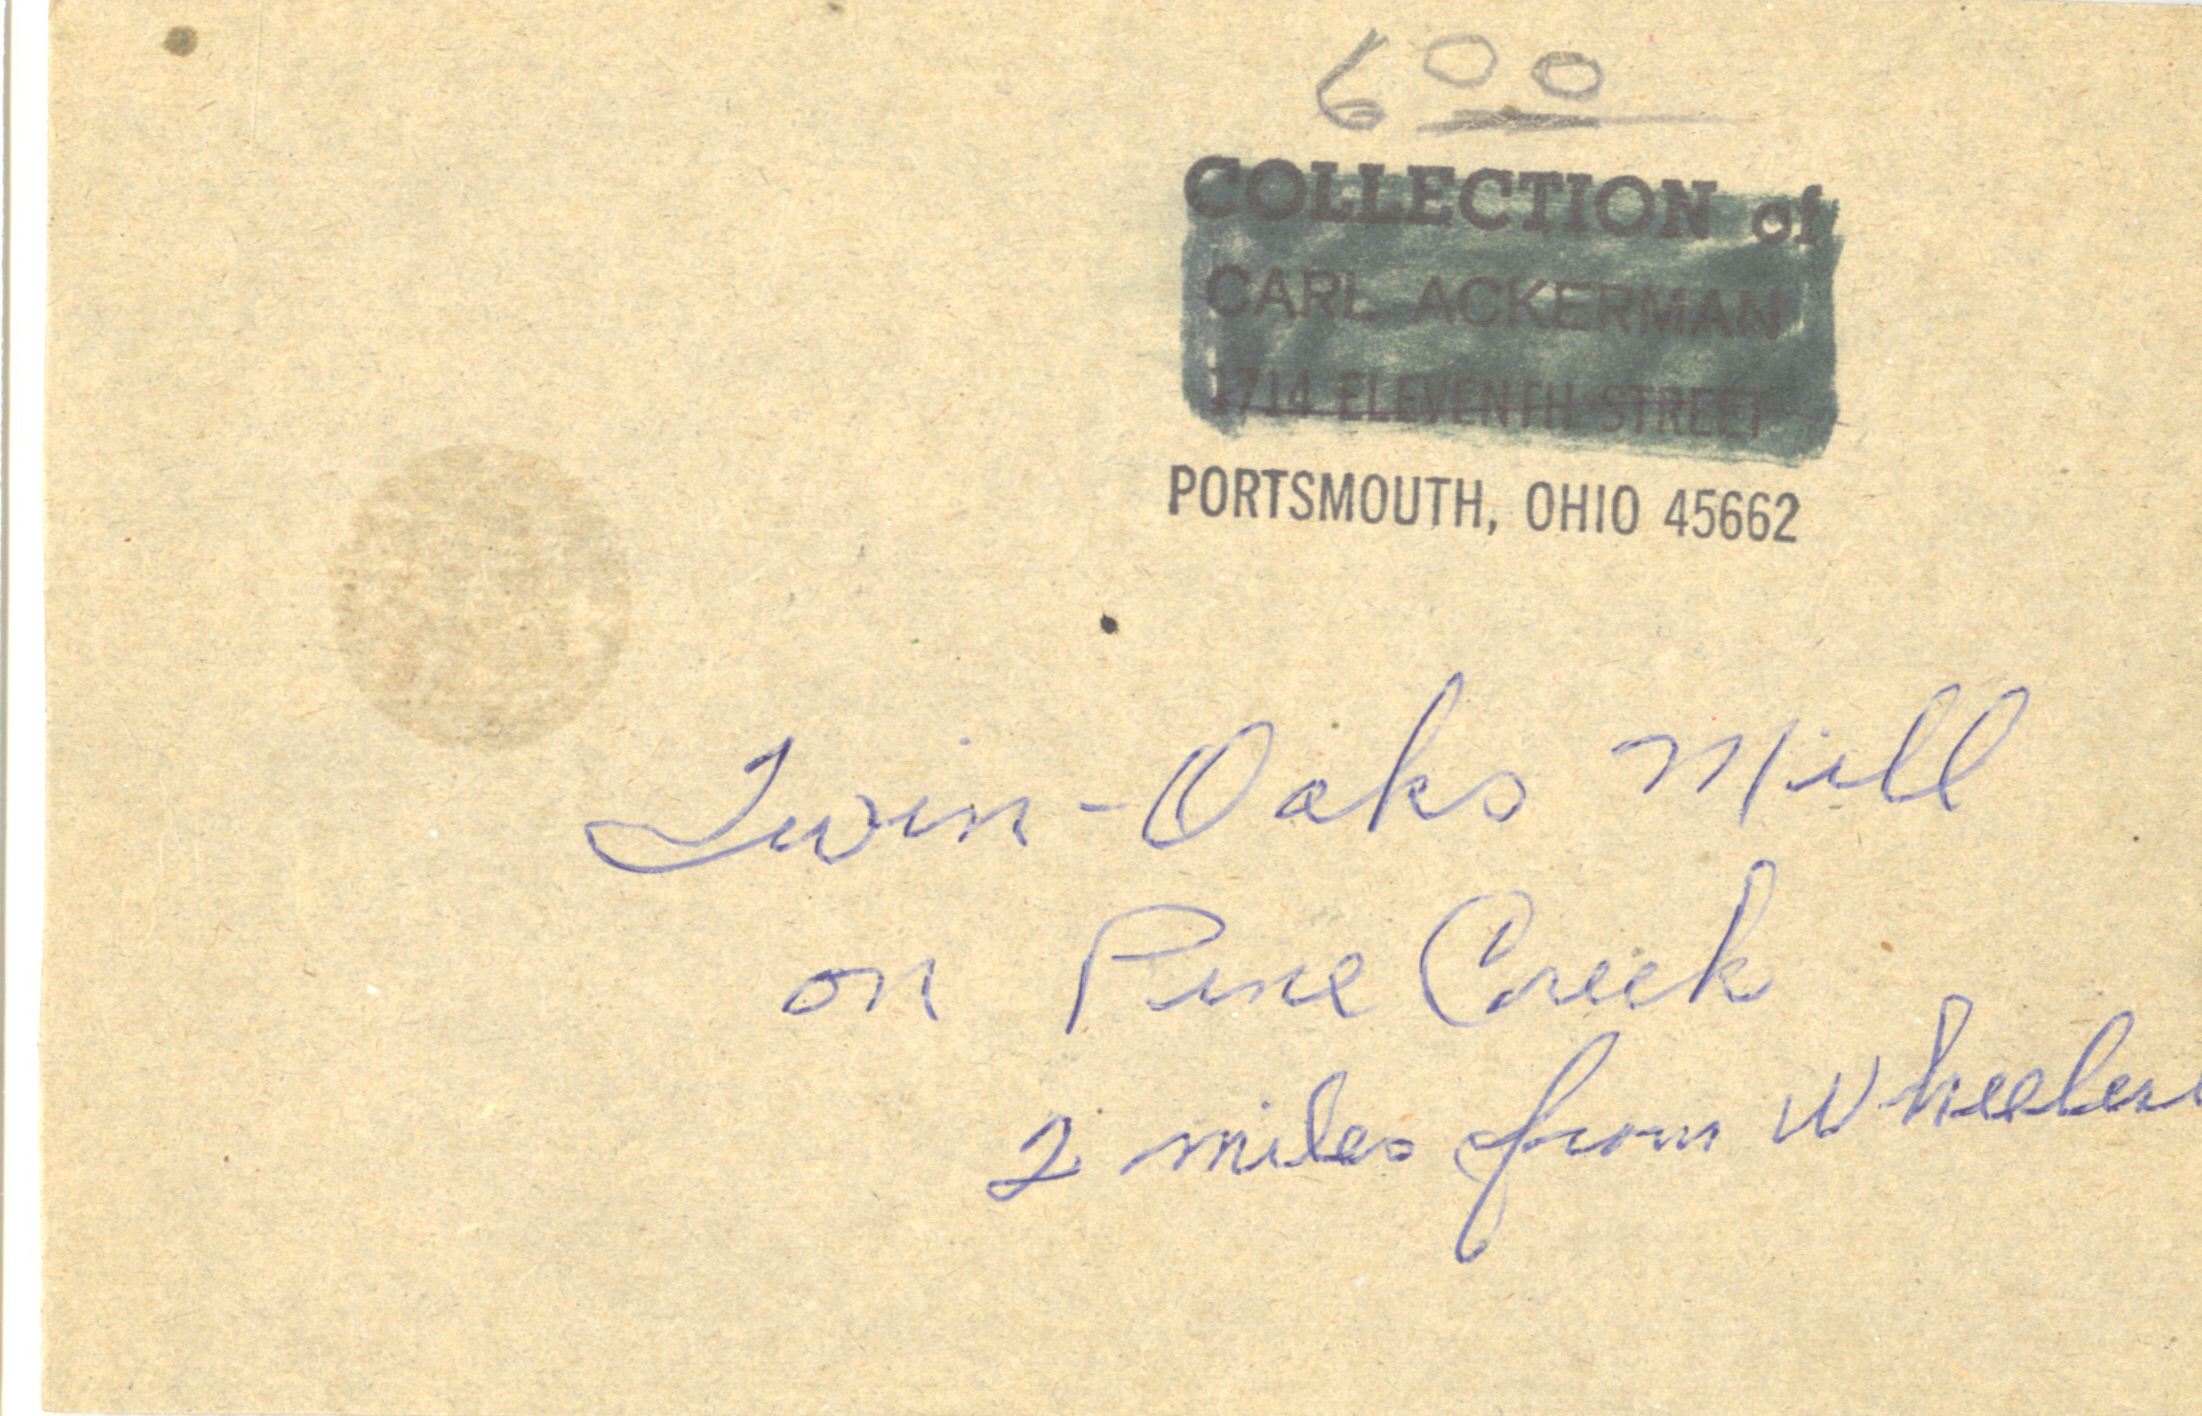 6 00
COLLECTION of
CARL ACKERMAN
1714 ELEVENTH STREET
PORTSMOUTH, OHIO 45662
Twin-Oaks Mill
on Pine Creek
2 miles from